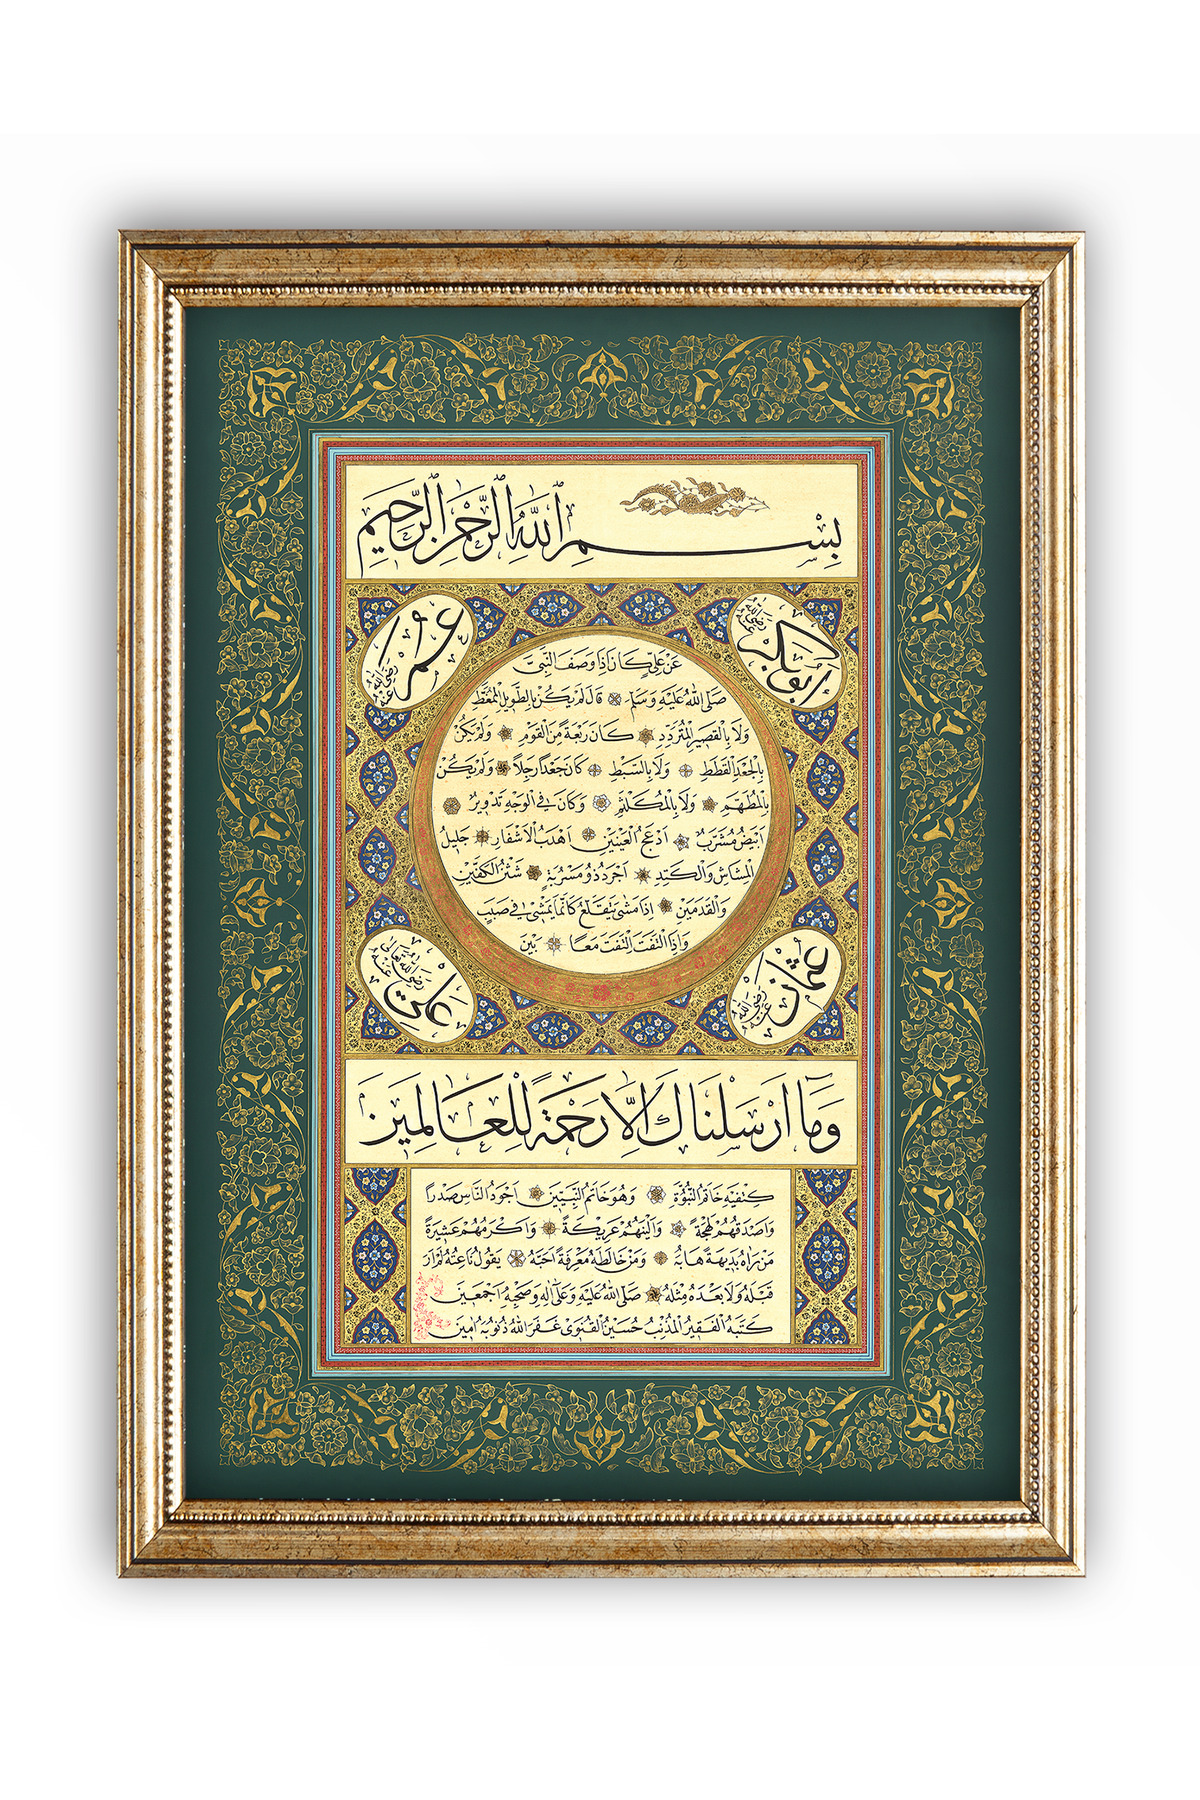 بِسْمِ اللّٰهِ الرَّحْمٰنِ الرَّحِيمِ
ابوبكر رضى الله عنه
عمر رضى الله عنه
عَنْ عَلِيٍّ كَانَ اِذَا وَصَفَ النَّبِيَّ
صَلَّى اللّٰهُ عَلَيْهِ وَسَلَّمَ قَالَ لَمْ يَكُنْ بِالطَّوِيلِ الْمُمَّغِطِ
وَلَا بِالْقَصِيرِ الْمُتَرَدِّدِ كَانَ رَبْعَةً مِنَ الْقَوْمِ وَلَمْ يَكُنْ
بِالْجَعْدِ الْقَطَطِ وَلَا بِالسَّبْطِ كَانَ جَعْدًا رَجِلًا وَلَمْ يَكُنْ
بِالْمُطَهَّمِ وَلَا بِالْمُكَلْثَمِ وَكَانَ فِي الْوَجْهِ تَدْوِيرٌ
اَبْيَضُ مُشْرَبٌ اَدْعَجُ الْعَيْنَيْنِ اَهْدَبُ الْاَشْفَارِ جَلِيلُ
الْمُشَاشِ وَالْكَتِدِ اَجْرَدُ ذُو مَسْرُبَةٍ شَثْنُ الْكَفَّيْنِ
وَالْقَدَمَيْنِ اِذَا مَشَى يَتَقَلَّعُ كَاَنَّمَا يَمْشِي فِي صَبَبٍ
وَاِذَا الْتَفَتَ الْتَفَتَ مَعًا بَيْنَ
عثمان رضى الله عنه
على رضى الله تعالى عنه
وَمَا اَرْسَلْنَاكَ اِلَّا رَحْمَةً لِلْعَالَمِينَ
كَتِفَيْهِ خَاتَمُ النُّبُوَّةِ وَهُوَ خَاتَمُ النَّبِيِّينَ اَجْوَدُ النَّاسِ صَدْرًا
وَاَصْدَقُهُمْ لَهْجَةً وَاَلْيَنُهُمْ عَرِيكَةً وَاَكْرَمُهُمْ عَشِيرَةً
مَنْ رَاٰهُ بَدِيهَةً هَابَهُ وَمَنْ خَالَطَهُ مَعْرِفَةً اَحَبَّهُ يَقُولُ نَاعِتُهُ لَمْ اَرَ
قَبْلَهُ وَلَا بَعْدَهُ مِثْلَهُ صَلَّى اللّٰهُ عَلَيْهِ وَعَلٰى اٰلِهِ وَصَحْبِهِ اَجْمَعِينَ
كَتَبَهُ الْفَقِيرُ الْمُذْنِبُ حُسَيْنُ الْقُنَوِى غَفَرَ اللّٰهُ ذُنُوبَهُ اٰمِينَ